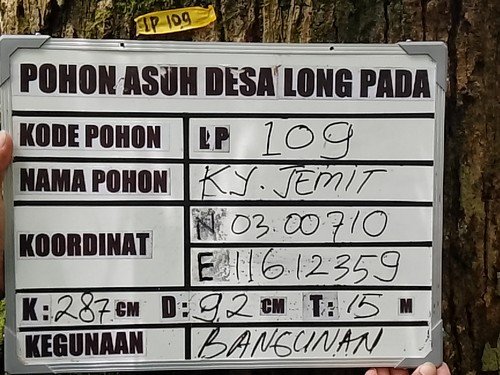 LP 109
POHON ASUH DESA LONG PADA
KODE POHON LP 109
NAMA POHON KY. JEMIT
KOORDINAT N 03.00710
E 116.12359
K: 287 CM D: 92 CM T: 15 M
KEGUNAAN BANGUNAN